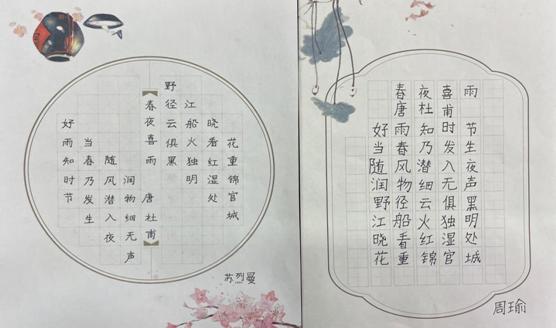 春夜喜雨 唐 杜甫
好雨知时节
当春乃发生
随风潜入夜
润物细无声
野径云俱黑
江船火独明
晓看红湿处
花重锦官城
苏烈曼
春夜喜雨
唐杜甫
好雨知时节
当春乃发生
随风潜入夜
润物细无声
野径云俱黑
江船火独明
晓看红湿处
花重锦官城
周瑜